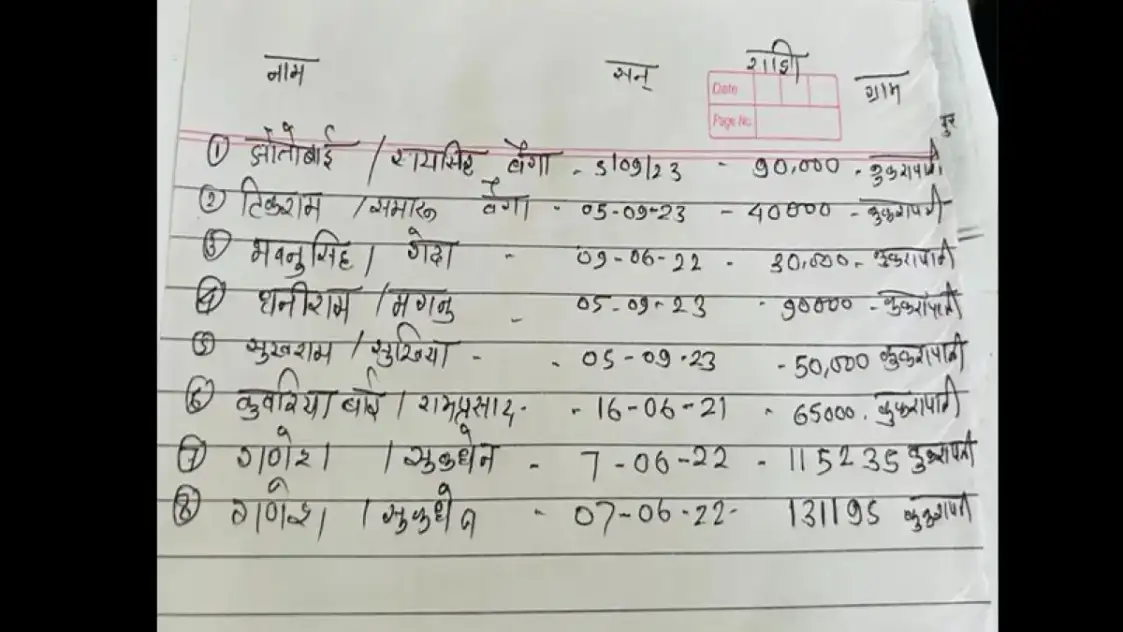 नाम सन् राशि ग्राम
Date
Page No.
① झोतोबाई / रायसिंह बैगा - 5/09/23 - 90,000 - कुकरापानी
② टिकाराम / समारू बैगा - 05-09-23 - 40000 - कुकरापानी
③ भवनुसिह / गेंदा - 09-06-22 - 30,000 - कुकरापानी
④ धनीराम / मगनु - 05-09-23 - 90000 - कुकरापानी
⑤ सुखराम / सुखिया - - 05-09-23 - 50,000 कुकरापानी
⑥ कुवरिया बाई / रामप्रसाद - - 16-06-21 - 65000 - कुकरापानी
⑦ गणेश / सुकधेन - 7-06-22 - 115235 कुकरापानी
⑧ गणेश / सुकधेन - 07-06-22 - 131195 कुकरापानी